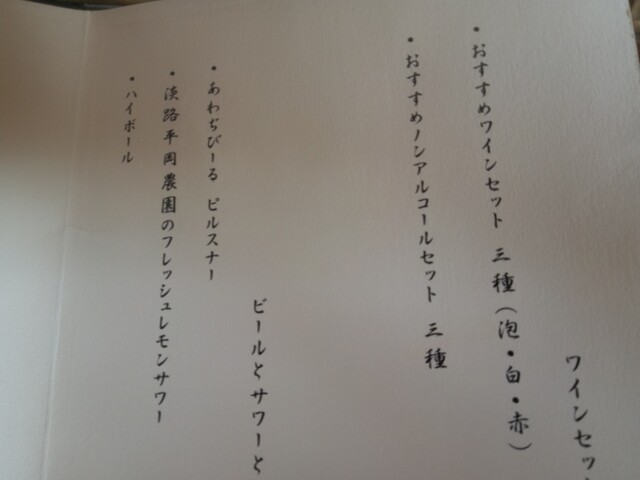 ワインセッ
・おすすめワインセット 三種(泡・白・赤)
・おすすめノンアルコールセット 三種
ビールとサワーと
・あわぢびーる ピルスナー
・淡路平岡農園のフレッシュレモンサワー
・ハイボール